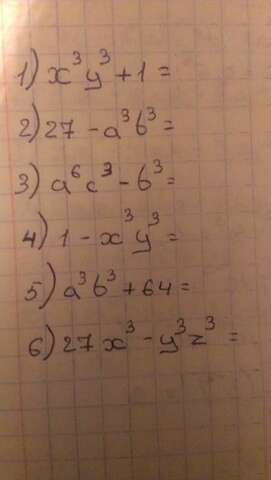 1) x³y³ + 1 =
2) 27 - a³b³ =
3) a⁶c³ - b³ =
4) 1 - x³y³ =
5) a³b³ + 64 =
6) 27x³ - y³z³ =